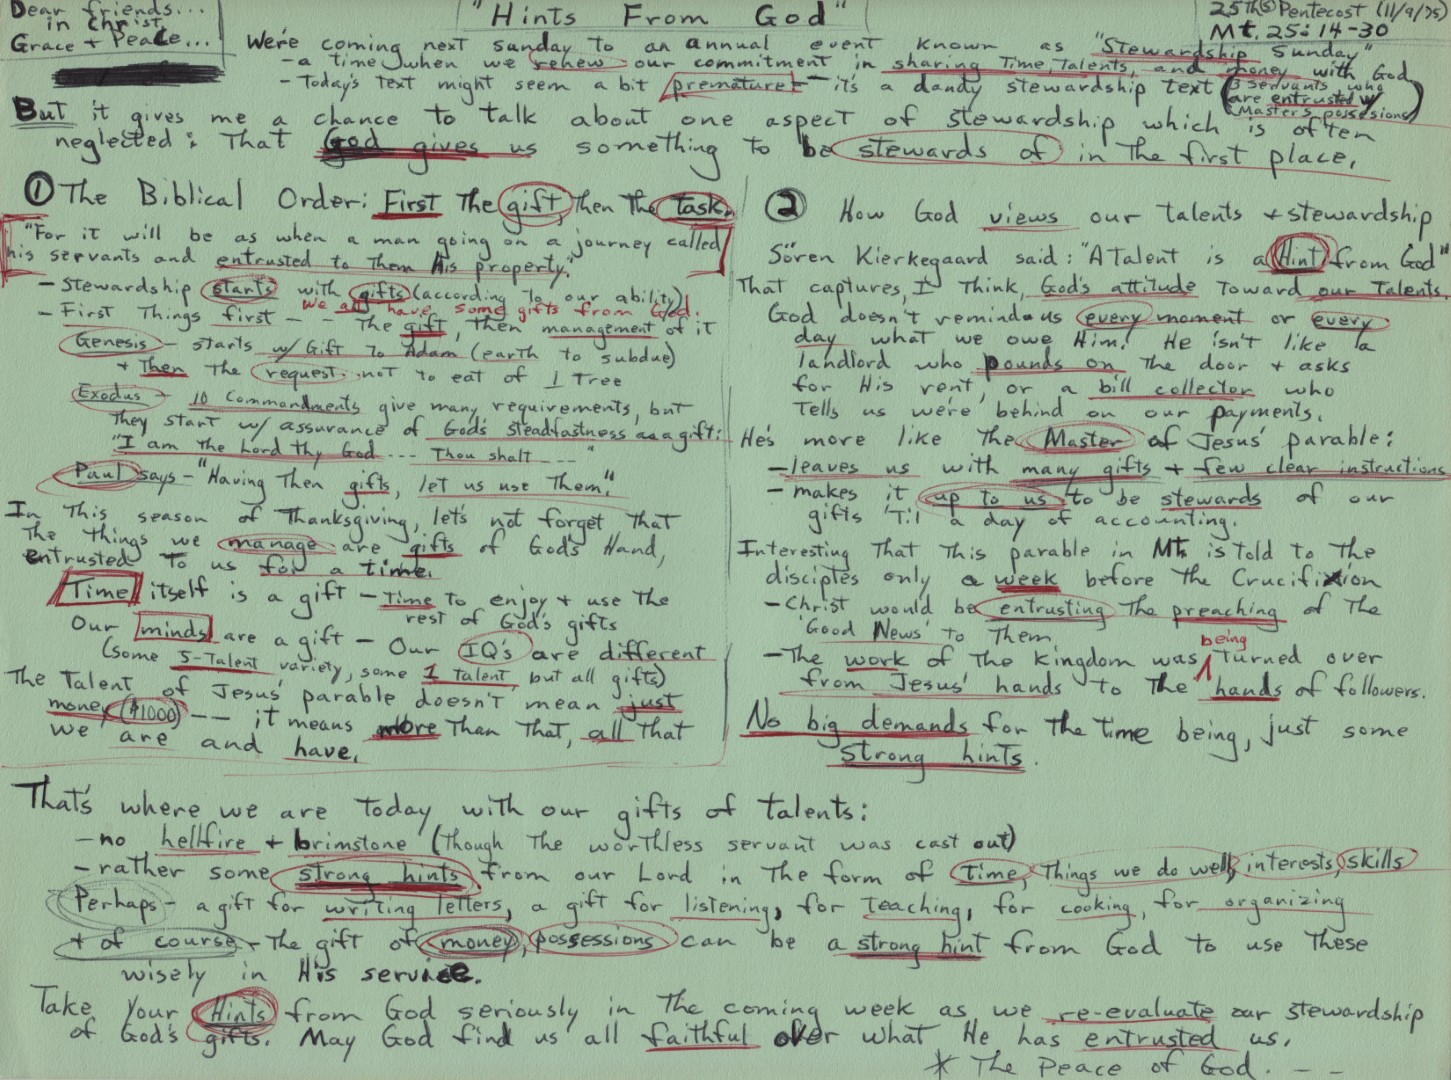 Dear friends...
in Christ,
Grace + Peace...
"Hints From God"
25th(S) Pentecost (11/9/75)
Mt. 25:14-30
We're coming next sunday to an annual event known as "Stewardship Sunday"
- a time when we renew our commitment in sharing Time, Talents, and money with God
- Today's Text might seem a bit premature - it's a dandy stewardship text (3 servants who
are entrusted w/
Masters possesions)
But it gives me a chance to talk about one aspect of stewardship which is often
neglected: That God gives us something to be stewards of in the first place.
① The Biblical Order: First The gift, Then The task.
"For it will be as when a man going on a journey called
his servants and entrusted to Them his property."
- Stewardship starts with gifts (according to our ability)
We all have some gifts from God.
- First Things first - - The gift, Then management of it
Genesis - starts w/ Gift To Adam (earth to subdue)
+ Then The request not to eat of 1 Tree
Exodus - 10 Commandments give many requirements, but
They start w/ assurance of God's steadfastness as a gift:
"I am the Lord thy God --- Thou shalt ---"
Paul says - "Having Then gifts, let us use Them."
In This season of Thanksgiving, let's not forget That
The Things we manage are gifts of God's Hand,
entrusted To us for a time.
Time itself is a gift - Time to enjoy + use The
rest of God's gifts
Our minds are a gift - Our IQ's are different
(some 5-Talent variety, some 1 Talent but all gifts)
The Talent of Jesus' parable doesn't mean just
money ($1000) -- it means more Than That, all That
we are and have.
② How God views our talents + stewardship
Sören Kierkegaard said: "A Talent is a Hint from God"
That captures, I Think, God's attitude Toward our Talents.
God doesn't remind us every moment or every
day what we owe Him. He isn't like a
landlord who pounds on The door + asks
for His rent, or a bill collector who
Tells us we're behind on our payments.
He's more like The Master of Jesus' parable:
- leaves us with many gifts + few clear instructions
- makes it up to us to be stewards of our
gifts 'Til a day of accounting.
Interesting That This parable in Mt. is Told to The
disciples only a week before The Crucifixion
- Christ would be entrusting The preaching of The
'Good News' to Them
- The work of The Kingdom was being Turned over
from Jesus' hands to The hands of followers.
No big demands for The Time being, just some
strong hints.
That's where we are Today with our gifts of Talents:
- no hellfire + brimstone (Though The worthless servant was cast out)
- rather some strong hints from our Lord in The form of Time, Things we do well, interests, skills
Perhaps - a gift for writing letters, a gift for listening, for Teaching, for cooking, for organizing
+ of course - The gift of money, possessions can be a strong hint from God to use These
wisely in His service.
Take your Hints from God seriously in The coming week as we re-evaluate our stewardship
of God's gifts. May God find us all faithful over what He has entrusted us.
* The Peace of God. - -